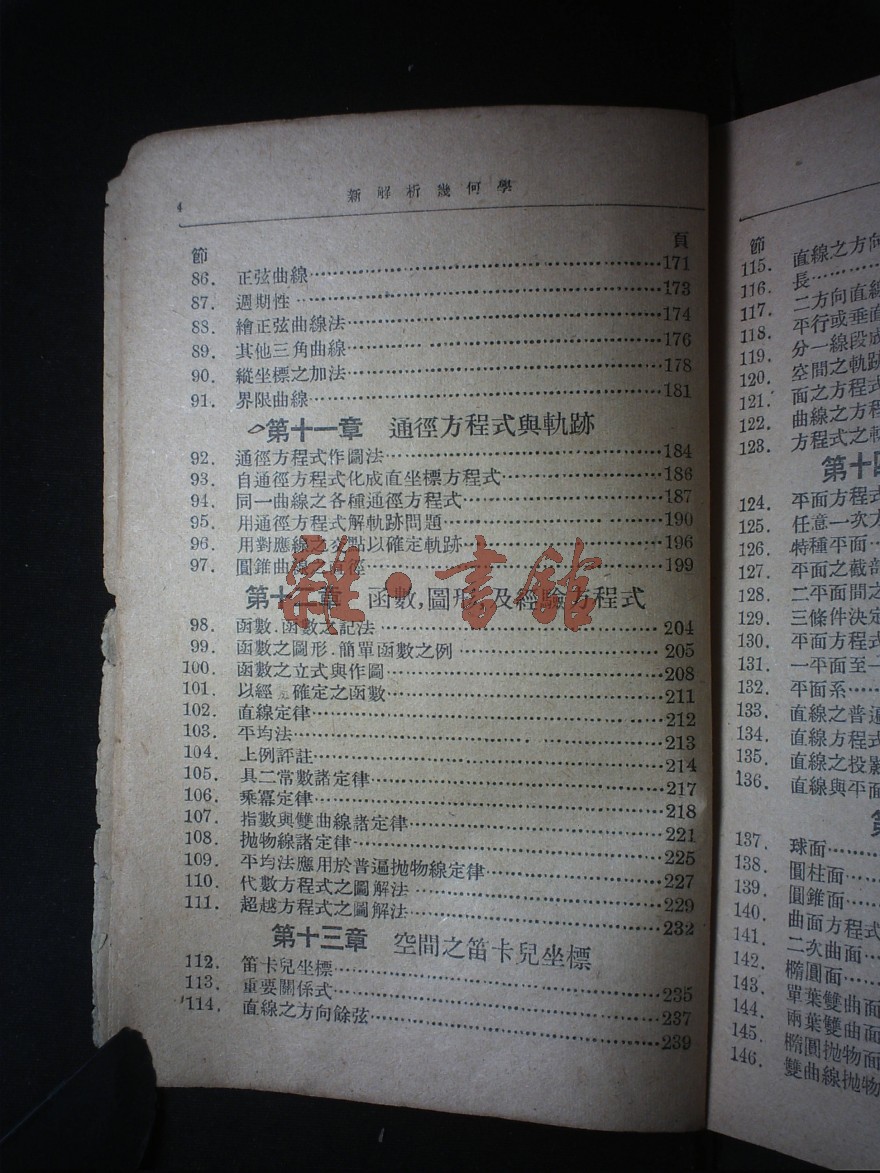 4
新解析幾何學
節 頁
86. 正弦曲線……171
87. 週期性……173
88. 繪正弦曲線法……174
89. 其他三角曲線……176
90. 縱坐標之加法……178
91. 界限曲線……181
第十一章 通徑方程式與軌跡
92. 通徑方程式作圖法……184
93. 自通徑方程式化成直坐標方程式……186
94. 同一曲線之各種通徑方程式……187
95. 用通徑方程式解軌跡問題……190
96. 用對應線之交點以確定軌跡……196
97. 圓錐曲線之直徑……199
第十二章 函數,圖形,及經驗方程式
98. 函數.函數之記法……204
99. 函數之圖形.簡單函數之例……205
100. 函數之立式與作圖……208
101. 以經 確定之函數……211
102. 直線定律……212
103. 平均法……213
104. 上例評註……214
105. 具二常數諸定律……217
106. 乘冪定律……218
107. 指數與雙曲線諸定律……221
108. 拋物線諸定律……225
109. 平均法應用於普遍拋物線定律……227
110. 代數方程式之圖解法……229
111. 超越方程式之圖解法……232
第十三章 空間之笛卡兒坐標
112. 笛卡兒坐標……235
113. 重要關係式……237
114. 直線之方向餘弦……239
雜·書館
節
115. 直線之方向
116. 長……
117. 二方向直線
118. 平行或垂直
119. 分一線段成
120. 空間之軌跡
121. 面之方程式
122. 曲線之方程
123. 方程式之軌
第十四
124. 平面方程式
125. 任意一次方
126. 特種平面…
127. 平面之截部
128. 二平面間之
129. 三條件決定
130. 平面方程式
131. 一平面至一
132. 平面系……
133. 直線之普遍
134. 直線方程式
135. 直線之投影
136. 直線與平面
第
137. 球面……
138. 圓柱面…
139. 圓錐面…
140. 曲面方程式
141. 二次曲面…
142. 橢圓面…
143. 單葉雙曲面
144. 兩葉雙曲面
145. 橢圓拋物面
146. 雙曲線拋物